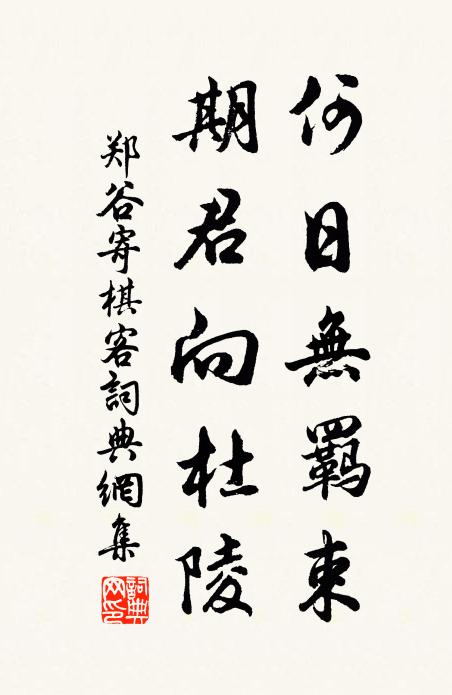 何日無羈束
期君向杜陵
郑谷寄棋客詞典網集
詞典
网印